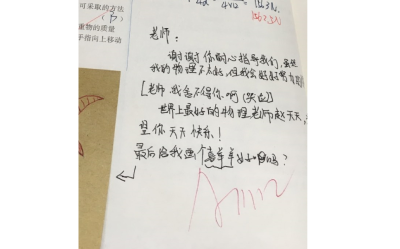 可采取的方法
(B)
重物的质量
手指向上移动
老师：
谢谢你耐心指导我们，虽然
我的物理不太好，但我会好好努力的
[老师，我舍不得你啊(哭泣)]
世界上最好的物理老师赵天天：
望你天天快乐！
最后给我画个喜羊羊好吗？